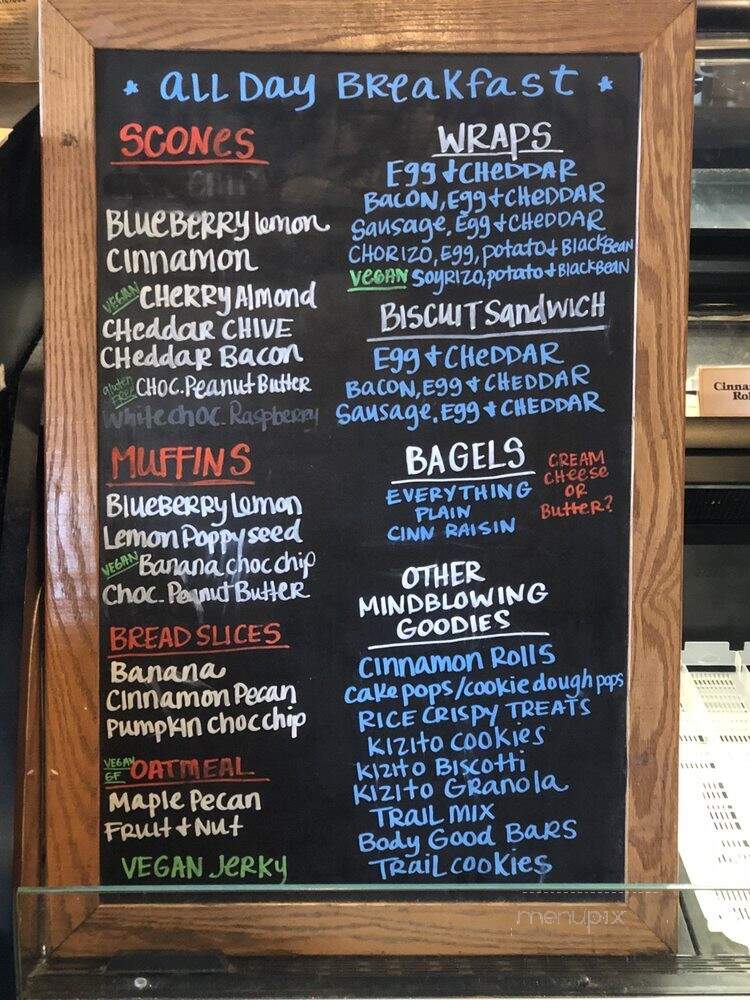 * ALL DAY BREAKFAST *
SCONES
BLUEBERRY lemon
CINNAMON
VEGAN CHERRY Almond
CHeddar CHIVE
CHeddar Bacon
gluten FREE CHOC. Peanut Butter
White choc. Raspberry
MUFFINS
BLUEBERRY Lemon
Lemon Poppyseed
VEGAN Banana choc chip
Choc. Peanut Butter
BREAD SLICES
Banana
Cinnamon Pecan
Pumpkin choc chip
VEGAN GF OATMEAL
Maple Pecan
Fruit + Nut
VEGAN JERKY
WRAPS
Egg + CHEDDAR
BACON, Egg + CHEDDAR
Sausage, Egg + CHEDDAR
CHORIZO, Egg, potato + Black Bean
VEGAN SOYRIZO, potato + BLACK BEAN
BISCUIT SandWICH
Egg + CHEDDAR
BACON, Egg + CHEDDAR
Sausage. Egg + CHEDDAR
BAGELS
EVERYTHING
PLAIN
CINN RAISIN
CREAM
CHeese
OR
Butter?
OTHER
MINDBLOWING
GOODIES
CINNAMON ROLLS
cake pops/cookie dough pops
RICE CRISPY TREATS
KIZITO COOKIES
KIZITO BISCOTTI
KIZITO GRANOLA
TRAIL MIX
Body Good BARS
TRAIL COOKIES
Cinna
Rol
menupix